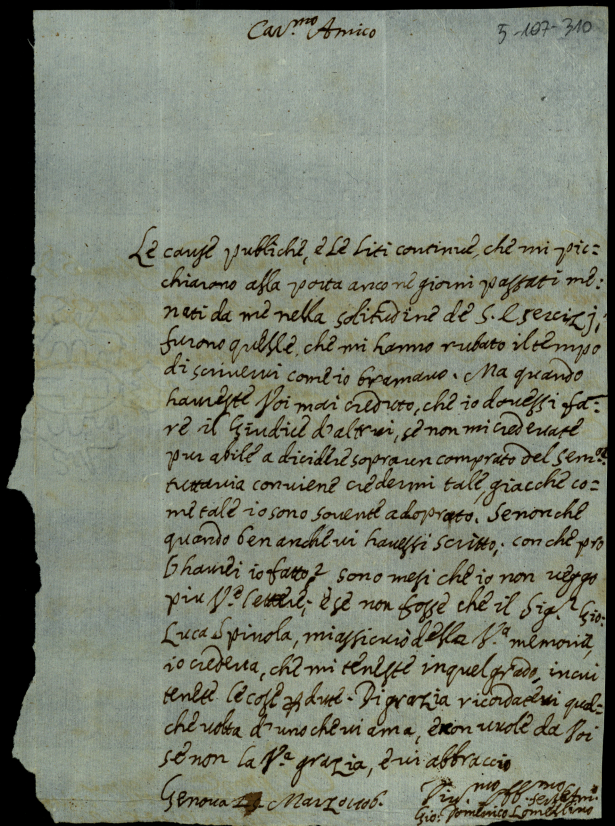 Car.mo Amico
5-107-310
Le cause publiche, e le liti continue, che mi pic=
chiarono alla porta anco ne giorni passati me=
nati da me nella solitudine de S. Esercizj,
furono quelle, che mi hanno rubato il tempo
di scrivervi come io bramavo. Ma quando
haveste Voi mai creduto, che io dovessi fa=
re il Giudice d'altrui, se non mi credevate
pur abile a dicidere sopra un comprato del
tuttavia conviene credermi tale, giacche co=
me tale io sono sovente adoprato. Senonche
quando ben anche vi havessi scritto; con che pro
l'haverei io fatto? sono mesi che io non veggo
piu V.e lettere; e se non fosse che il Sig.r Gio:
Luca Spinola, mi assicurò della V.a memoria,
io credeva, che mi teneste in quel grado, in cui
tenete le cose perdute. Di grazia ricordatevi qual=
che volta d'uno che vi ama, e non vuole da Voi
se non la V.a grazia, e vi abbraccio
Genova Marzo 1706.
Gio: Domenico Lomellino